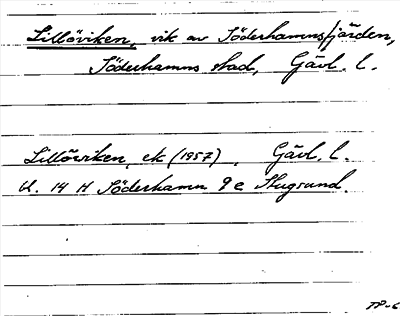 Lillöviken, vik av Söderhamnsfjärden,
Söderhamns stad, Gävl. l.
Lillöviken, ek (1957), Gävl. l.
Bl. 14 H Söderhamn 9 e Stugsund.